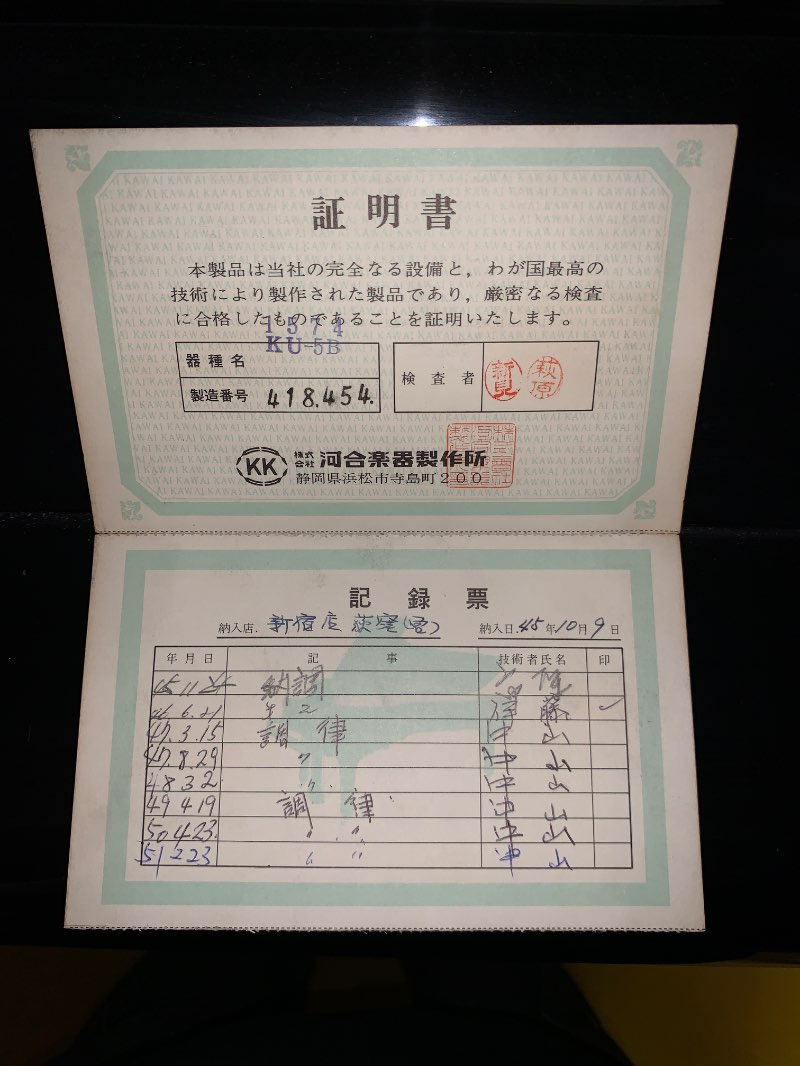 証明書
本製品は当社の完全なる設備と，わが国最高の
技術により製作された製品であり，厳密なる検査
に合格したものであることを証明いたします。
1574
器種名 KU-5B
製造番号 418.454.
検査者 新見 萩原
KK 株式会社 河合楽器製作所
静岡県浜松市寺島町200
記録票
納入店. 新宿店 荻窪 納入日. 45年10月9日
年月日 記事 技術者氏名 印
45 11 納調
46.6.21
47.3.15 調律 中山
47.8.29 〃 中山
48 3 2 〃 中山
49 4 19 調律 中山
50 4 23 〃 〃 中山
51 2 23 〃 〃 中山